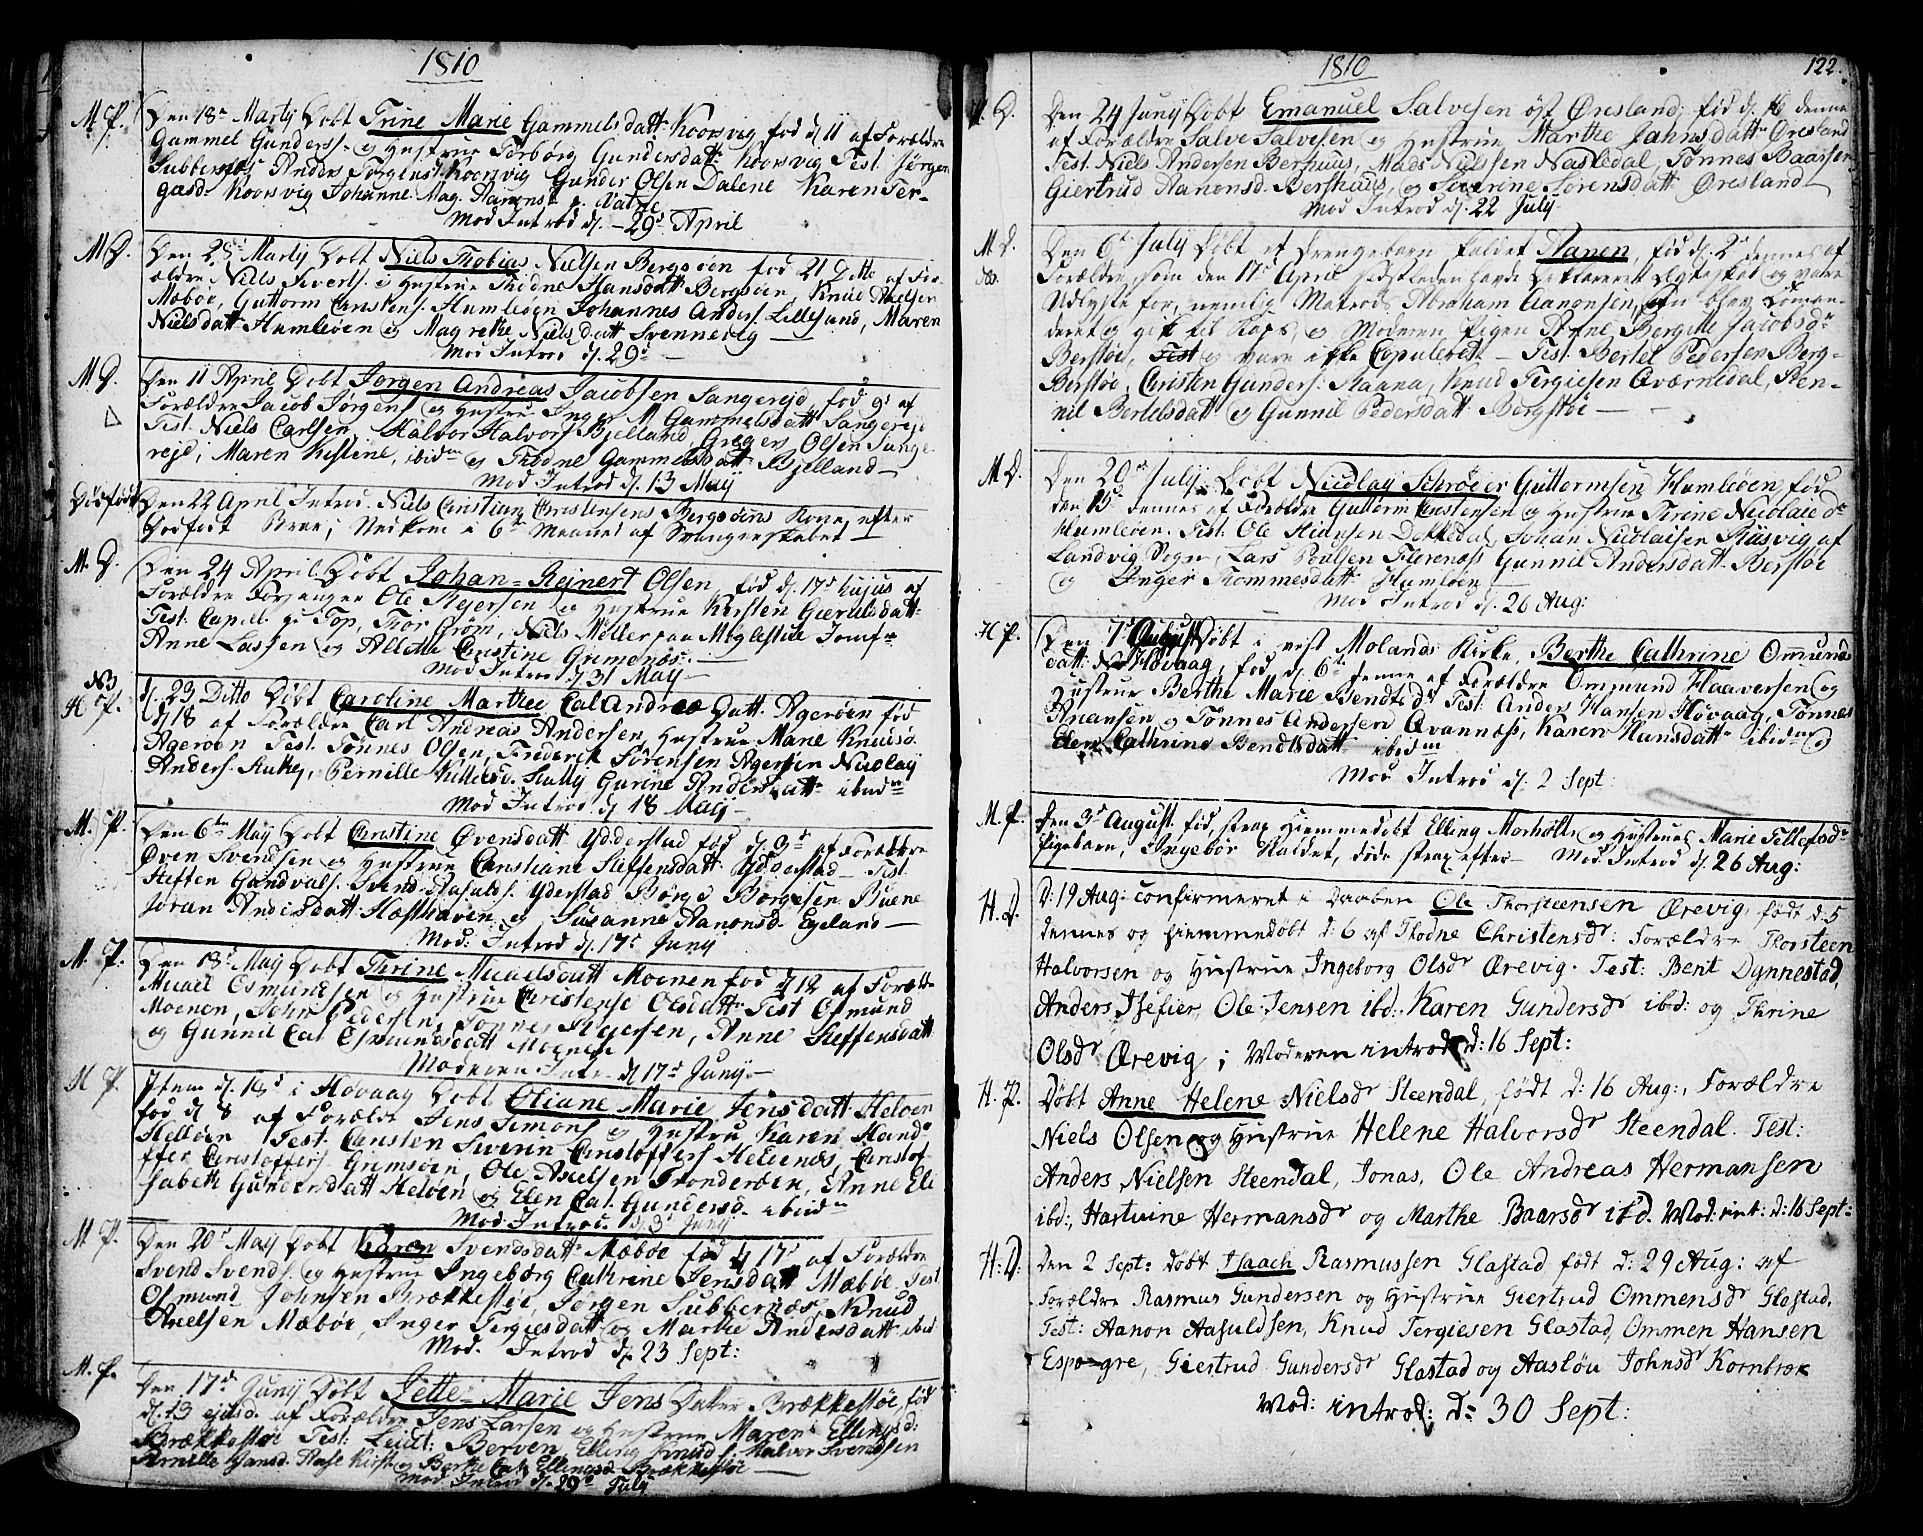 1810
M. P. Den 18de Marty Döbt Trine Marie Gammels datt. Koorsvig fød d. 11 af Forældre
Gammel Gunders. og Hustrue Torbørg Gundersdatt. Koorsvig Test. Jørgen
Subbersnæs, Anders Koorsvig Gunder Olsen Dalene Karen Ter-
gesd. Koorsvig Johanne Mag. Aarensd.
Mod Introd d. 29d April
M D. Den 25d Marty Döbt Niels Thobias Nielsen Bergsøen fød 21 Ditto af For-
ældre Niels Siverts. i Hustrue Thodne Hansdatt. Bergsøen Knud Nielsen
Mæbøe, Guttorm Christens. Humløen Johannes Anders. Lillesand, Maren
Nielsdatt. Humløen og Magrethe Nielsdatt Svennevig
Mod Introd d. 29d
M D. Den 11 April Döbt Jørgen Andreas Jacobsen Sangereid, fød 9d af
Forældre Jacob Jørgens. og Hustru Inger M. Gammelsdatt Sangereid
Test. Niels Carlsen, Halvor Halvors. Bjelland, Gregers Olsen Sange-
rejd, Maren Kistine, ibidm og Thodne Gammelsdatt Bjelland
Mod Introd d. 13 Maij
Dødfødt Den 22 April Introd. Niels Christian Christensens Bergsøens Kone, efter
i 6te Maaned af Svangerskabet
M. D. Den 24 April Döbt Johan-Reinert Olsen, fød d. 17d hujus af
Forældre Forsanger Ole Rejersen og Hustrue Kirsten Gierulsdatt.
Test. Capell. Top, Thor Grøm, Niels Møller paa Møglestue Jomfr.
Anne Lassen og Alette Christine Grimenæs.
Mod Introd d 31 May
NB
H P. d. 23 Ditto Döbt Caroline Marthee Cal Andreæ Datt. Agerøen fød
d 18 af Forældre Carl Andreas Andersen, Hustrue Marie Knudsd.
Agerøen Test. Tønnes Olsen, Frederick Sørensen Agerøen Nicolay
Anders. Aukej, Pernille Gurine Andersdatt. ibidm
Mod Introd d 18 Maij
M. P. Den 6te May Döbt Christine Øvensdatt. Ydderstad fød d. 3d af Forældre
Øven Svendsen og Hustrue Christiane Steffensdatt. Ydderstad Test.
Steffen Gundvals. Svend Aasulds. Yderstad Børge Børgesen Buene
Joran Andersdatt. Hæsthaven og Susanne Aanonsd. Egeland
Mod: Introd d. 17d Juny
M. P. Den 18d May Döbt Thrine Micaelsdatt Moenen fød d 12 af Forældr.
Micael Osmundsen og Hustrue Christense Olsdatt. Test Osmund
Moenen, John Pedersen, Tønnes Rejersen, Anne Steffensdatt
og Gunnil Cat. Osmundsdatt Moenen
Moderen Intr. d 17d Juny
H P. Item d. i Høvaag Döbt Oliane Marie Jensdatt. Heløen
fød d 8 af Foræld: Jens Simons. og Hustru Karen
Helløen Test. Christen Siverin Christoffers. Helienæs, Christof-
fer Christoffers. Grimsøen, Ole Axelsen Trondersøen, Anne Eli-
sabeth Gundersdatt Heløen og Elen Cat. Gundersd. ibidm
Mod. Introd. d 3d Juny
M. P. Den 20d May Döbt Karen Svendsdatt. Mæbøe fød d 17d af Forældre
Svend Svends. og Hustrue Ingebørg Cathrine Jensdatt Mæbøe Test
Osmund Johnsen Brækkestøe, Jørgen Subbernæs, Knud
Nielsen Mæbøe, Inger Tergiesdatt og Marthe Andersdatt. ibid
Mod. Introd d. 23 Sept:
M. P. Den 17d Juny Döbt Jette-Marie Jens Dater Brækkestøe, fød
d. 13 ejusd. af Forældre Jens Larsen og Hustrue Maren Ellingsd:
Brækkestøe Test: Leiut: Berven, Elling Knuds. Halvor Svendsen
Pernille Hansd. og Berthe Cat. Ellingsd. Brækkestøe
Mod Introd d. 29d July
1810
122.
D. Den 24 Juny Döbt Emanuel Salvesen öst Øresland, fød d. 16 denne
af Forældre Salve Salvesen og Hustrue Marthe Jahnsdatt. Øresland
Test. Niels Andersen Berhuus, Mads Nielsen Naskedal, Tønnes Baassen
Giertrud Aanonsd. Berghuus, og Severine Sørensdatt. Øresland
Mod Introd d. 22 July
M. D. Den 6d July Döbt et Drengebarn kaldet Aanen fød d. 2d dennes af
Forældre, som den 17d April sidstleden havde Deklareret Ægteskab og vare
Udlyste for, nemlig Matros Abraham Aanonsen, som blev Coman-
deret og gik til Kaps, og Moderen Pigen Anne Bergitte Jacobsdr
Berstøe, Test og vare ikke Copulerede - Test. Bertel Pedersen Berg-
Berstøe, Christen Gunders: Aanna, Knud Tergiesen Qværnedal, Pen-
nil Bertelsdatt og Gunnil Pedersdatt Bergstøe
M D. Den 20de July Döbt Nicolay Schrøeer Guttormsen Humløen fød
den 15d dennes af Forældre Guttorm Christensen og Hustrue Tirine Nicolaid.
Humløen. Test. Ole Heinesen Dokkedal, Johan Nicolaisen Riisvig af
Landvig Sogn, Lars Poulsen Florenæs, Gunnil Andersdatt Berstøe
og Inger Trommesdatt Humløen
Mod Introd d. 26 Aug:
H P. Den 7d August Döbt i vest Molands Kirke, Berthe Cathrine Omunds
datt: N. Høvaag, fød d. 6t denne af Forældre Ommund Haaversen og
Hustrue Berthe Marie Bendtsdr. Test: Anders Hansen Høvaag, Tønnes
Anansen og Tønnes Andersen Qvannæs, Karen Hansdatt. ibidm og
Elen Cathrine Bendtsdatt. ibidm
Mod Introd d. 2 Sept:
M. P. Den 3d August. fød, strax Hiemmedøbt Elling Morholts og Hustrues Marie Tellefsdr
Pigebarn, Ingebør Kaldet, døde strax efter - Mod Introd d. 26 Aug:
H. D. D. 19 Aug: confirmeret i Daaben Ole Thorsteensen Ørevig, født d: 5
dennes og hiemmedøbt d: 6 af Thodne Christensdr: Forældre Thorsteen
Halvorsen og Hustrue Ingeborg Olsdr Ørevig. Test: Bent Dynnestad,
Anders Isefier, Ole Jensen ibd: Karen Gundersdr ibd: og Thrine
Olsdr Ørevig; Moderen introd: d: 16 Sept:
H. P. Døbt Anne Helene Nielsdr Steendal, født d: 16 Aug:, Forældre
Niels Olsen og Hustrue Helene Halvorsdr Steendal. Test:
Anders Nielsen Steendal, Jonas, Ole Andreas Hermansen
ibd:, Hartvine Hermansdr og Marthe Baarsdr ibd. Mod: int: d: 16 Sept:
H: D. Den 2 Sept: døbt Isaach Rasmussen Glastad født d: 29 Aug: af
Forældre Rasmus Gundersen og Hustrue Giertrud Ommensdr Glastad.
Test: Aanon Aasuldsen, Knud Tergiesen Glastad, Ommen Hansen
Espægre, Giertrud Gundersdr Glastad og Aasløu Johnsdr Kornbræk
Mod: introd: d: 30 Sept: